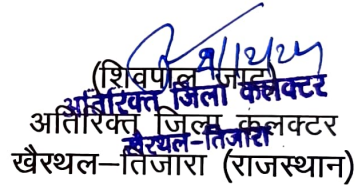 9/12/24
(शिवपाल जाट)
अतिरिक्त जिला कलक्टर
अतिरिक्त जिला कलक्टर
खैरथल-तिजारा
खैरथल–तिजारा (राजस्थान)